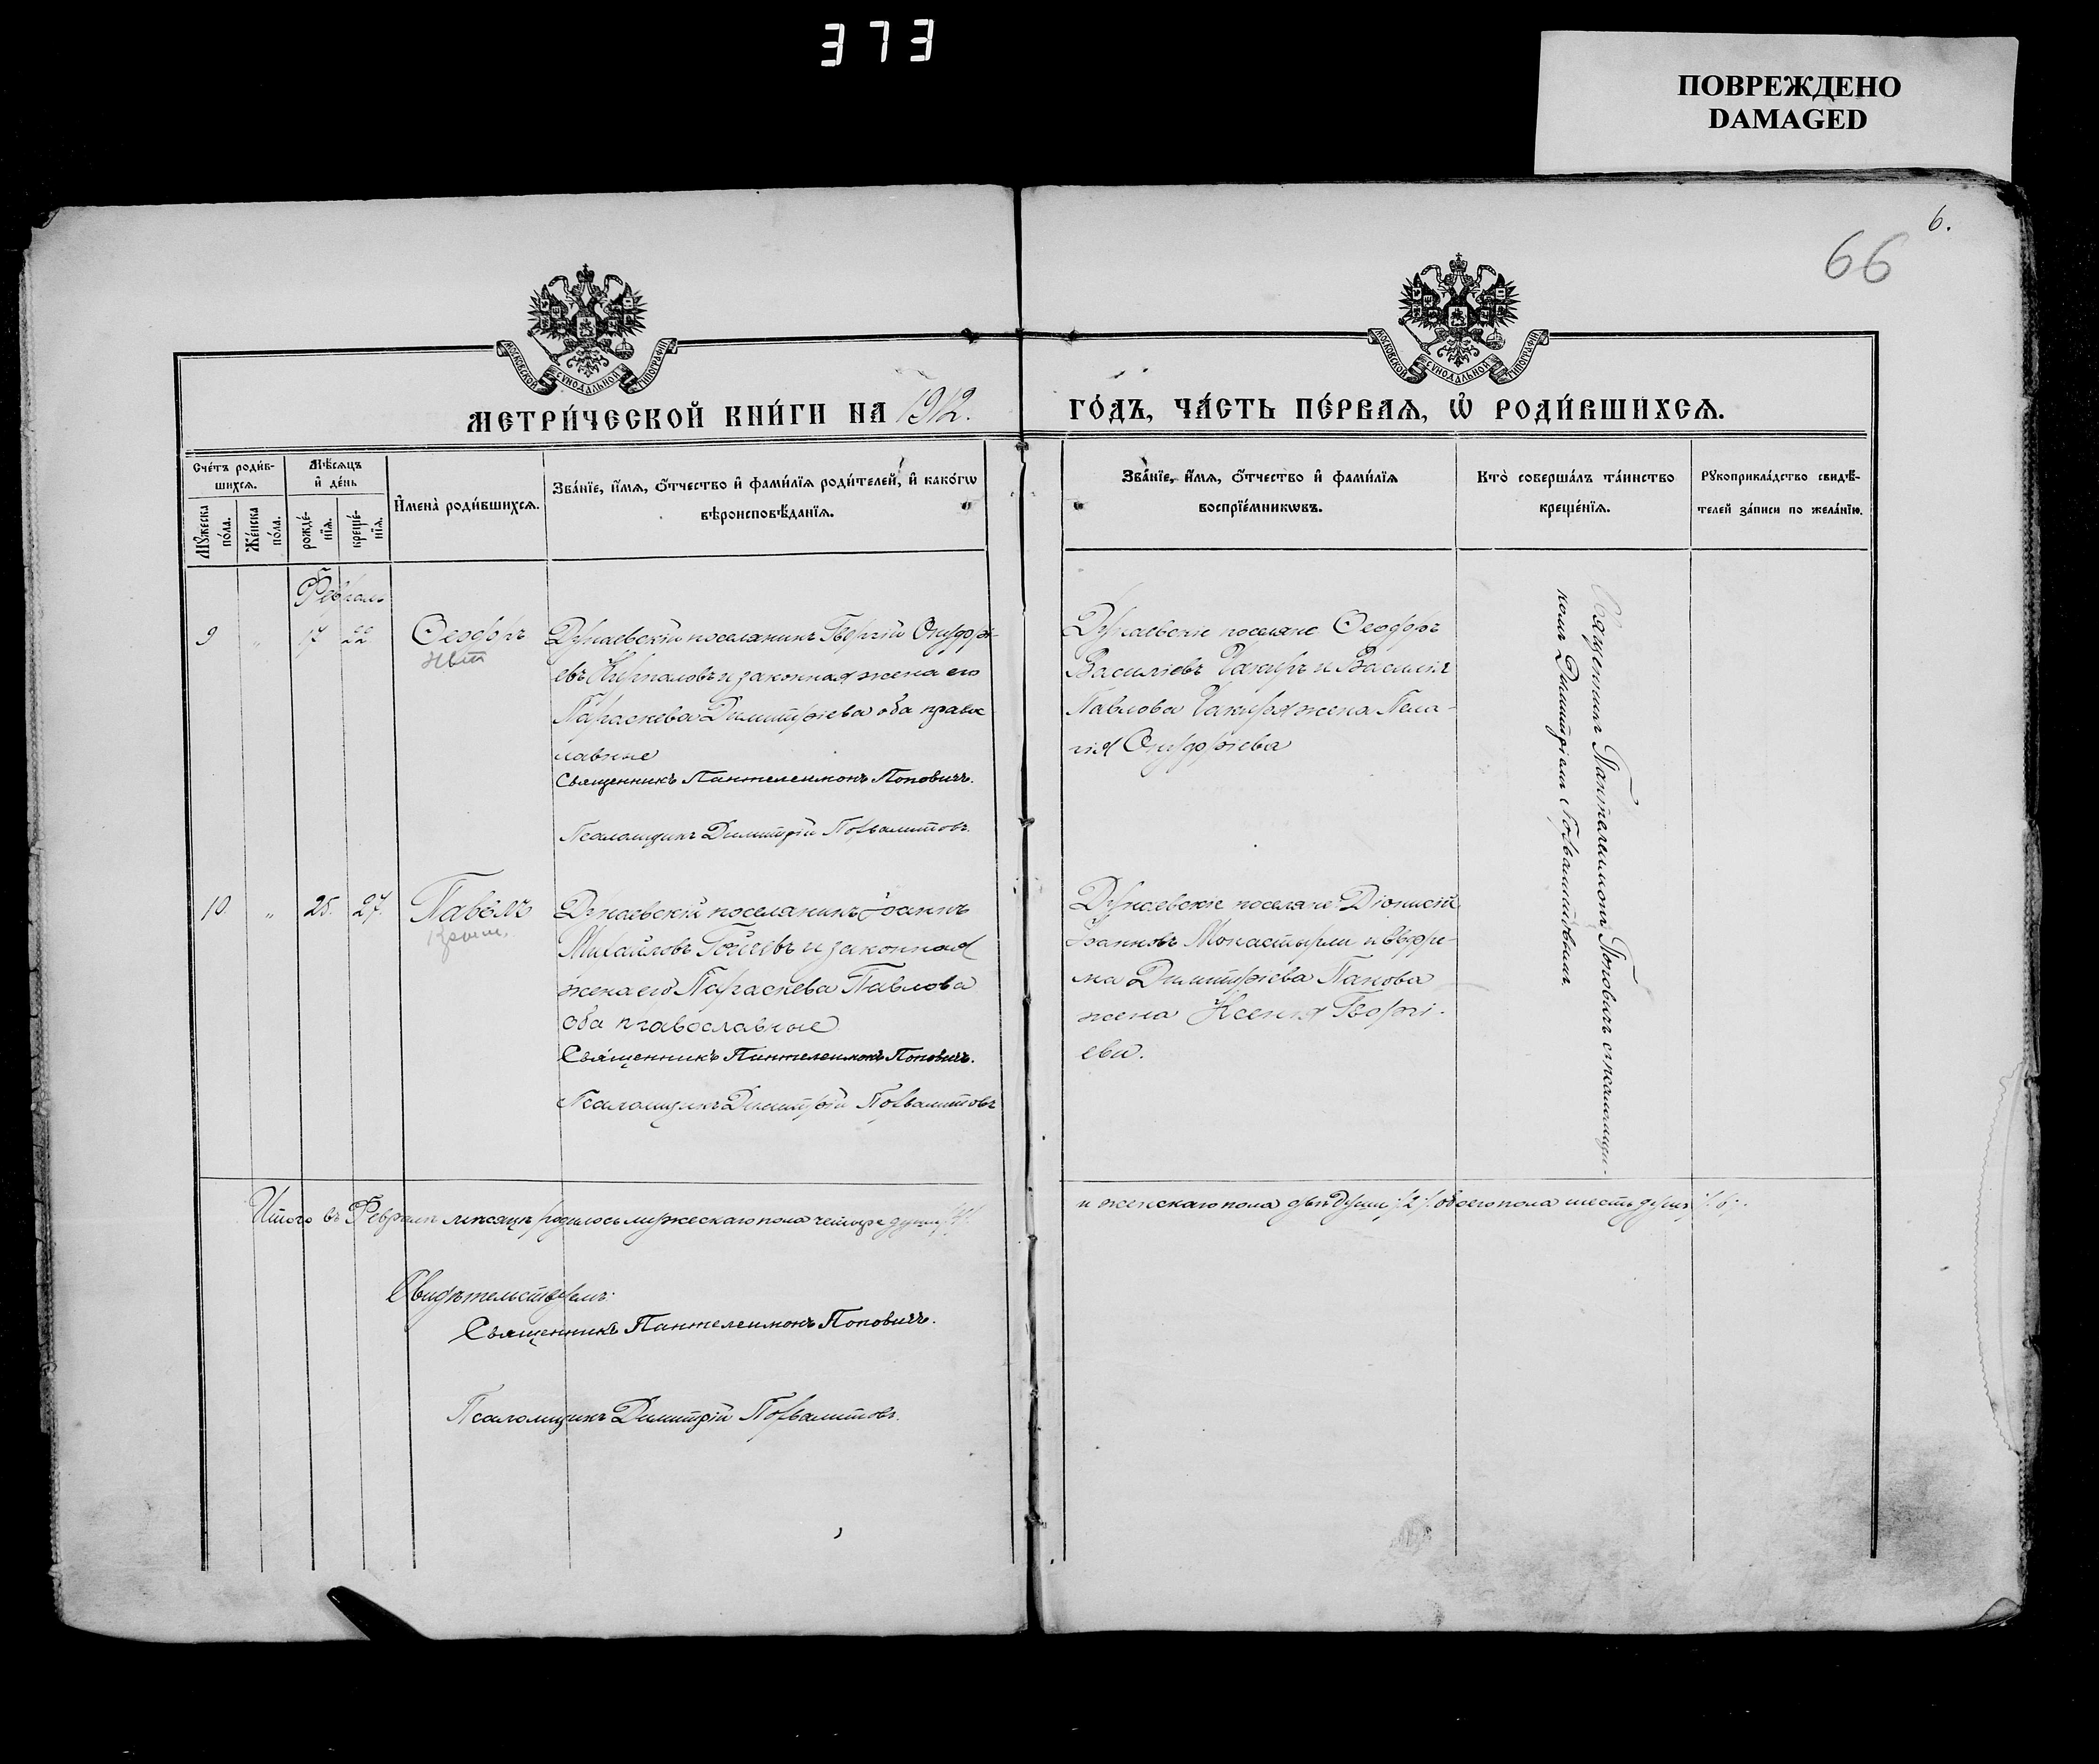 373
ПОВРЕЖДЕНО
DAMAGED
6.
66
МОСКОВСКОЙ СѴНОДАЛЬНОЙ ТИПОГРАФІИ
МОСКОВСКОЙ СѴНОДАЛЬНОЙ ТИПОГРАФІИ
МЕТРИ́ЧЕСКОЙ КНИ́ГИ НА 1912.
ГО́ДЪ, ЧА́СТЬ ПЕ́РВАѦ, Ѡ҆ РОДИ́ВШИХСѦ.
Сче́тъ роди́в-
шихсѧ.
Мꙋ́жеска по́ла.
Же́нска по́ла.
Мѣ́сѧцъ
и҆ де́нь
рожде́-
нїѧ.
креще́-
нїѧ.
И҆мена̀ роди́вшихсѧ.
Зва́нїе, и҆́мѧ, ѻ҆́тчество и҆ фами́лїѧ роди́телей, и҆ како́гѡ
вѣроисповѣ́данїѧ.
Зва́нїе, и҆́мѧ, ѻ҆́тчество и҆ фами́лїѧ
воспрїе́мникѡвъ.
Кто̀ соверша́лъ та́инство
креще́нїѧ.
Рꙋкоприкла́дство свидѣ́-
телей за́писи по жела́нїю.
Февраль
9 „ 17 22 Ѳеодоръ
Дезгинскій поселянинъ Георгій Онуфрі-
евъ и законная жена его
Параскева Димитріева оба право
славные
Священникъ Пантелеимонъ Поповичъ.
Псаломщикъ Димитрій Похвалитовъ.
поселяне Ѳеодоръ
Василіевъ Чакиръ и Василія
Павлова Чакира жена Пела-
гія Онуфріева
Священникъ Панталеимонъ Поповичъ съ псаломщи-
комъ Димитріемъ Похвалитовымъ.
10. „ 25. 27. Павелъ
Крест.
поселянинъ Іоаннъ
Михаиловъ и законная
жена его Параскева Павлова
оба православные
Священникъ Пантелеимонъ Поповичъ.
Псаломщикъ Димитрій Похвалитовъ
поселяне Діонисій
Іоанновъ Монастырли и Ефре-
ма Димитріева Панова
жена Ксенія Георгі-
ева.
Итого въ Февралѣ мѣсяцѣ родилось мужескаго пола четыре души /4/
и женскаго пола двѣ души /2/ обоего пола шесть душъ /6/.
Свидѣтельствуемъ:
Священникъ Пантелеимонъ Поповичъ.
Псаломщикъ Димитрій Похвалитовъ.